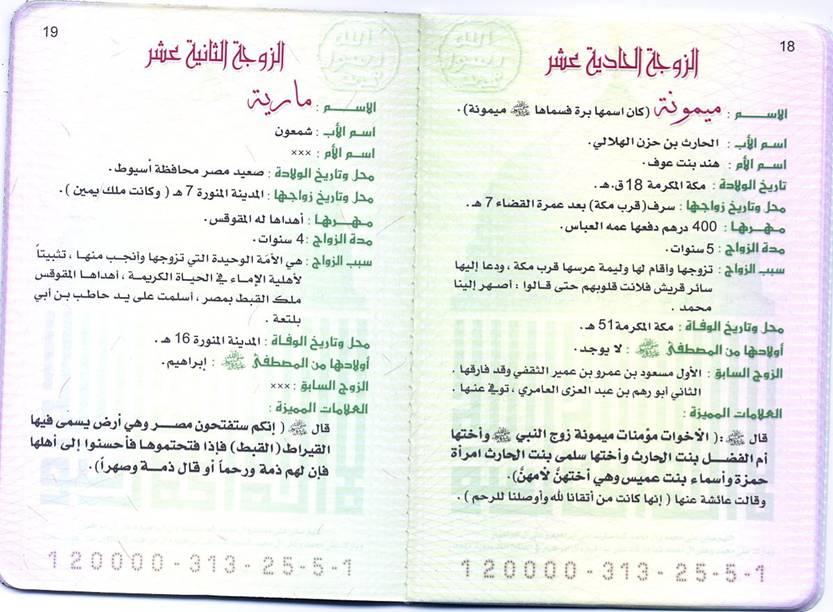 18
الزوجة الحادية عشر
الاســـم : ميمونة (كان اسمها برة فسماها ﷺ ميمونة) .
اسم الأب : الحارث بن حزن الهلالي .
اسم الأم : هند بنت عوف .
تاريخ الولادة : مكة المكرمة 18 ق.هـ .
محل وتاريخ زواجها : سرف (قرب مكة) بعد عمرة القضاء 7 هـ .
مهـرهـا : 400 درهم دفعها عمه العباس .
مدة الزواج : 5 سنوات .
سبب الزواج : تزوجها وأقام لها وليمة عرسها قرب مكة ، ودعا إليها
سائر قريش فلانت قلوبهم حتى قالوا : أصهر إلينا
محمد .
محل وتاريخ الوفاة : مكة المكرمة 51 هـ .
أولادها من المصطفى ﷺ : لا يوجد .
الزوج السابق : الأول مسعود بن عمرو بن عمير الثقفي وقد فارقها .
الثاني أبو رهم بن عبد العزى العامري ، توفي عنها .
العلامات المميزة :
قال ﷺ : ( الأخوات مؤمنات ميمونة زوج النبي ﷺ وأختها
أم الفضل بنت الحارث وأختها سلمى بنت الحارث امرأة
حمزة وأسماء بنت عميس وهي أختهنّ لأمهنّ).
وقالت عائشة عنها ( إنها كانت من أتقانا لله وأوصلنا للرحم ) .
120000-313-25-5-1
19
الزوجة الثانية عشر
الاســـم : مارية
اسم الأب : شمعون
اسم الأم : ×××
محل وتاريخ الولادة : صعيد مصر محافظة أسيوط .
محل وتاريخ زواجها : المدينة المنورة 7 هـ ( وكانت ملك يمين ) .
مهـرهـا : أهداها له المقوقس .
مدة الزواج : 4 سنوات .
سبب الزواج : هي الأمَة الوحيدة التي تزوجها وأنجب منها ، تثبيتاً
لأهلية الإماء في الحياة الكريمة ، أهداها المقوقس
ملك القبط بمصر ، أسلمت على يد حاطب بن أبي
بلتعة .
محل وتاريخ الوفاة : المدينة المنورة 16 هـ .
أولادها من المصطفى ﷺ : إبراهيم .
الزوج السابق : ×××
العلامات المميزة :
قال ﷺ ( إنكم ستفتحون مصر وهي أرض يسمى فيها
القيراط (القبط) فإذا فتحتموها فأحسنوا إلى أهلها
فإن لهم ذمة ورحماً أو قال ذمة وصهراً).
120000-313-25-5-1